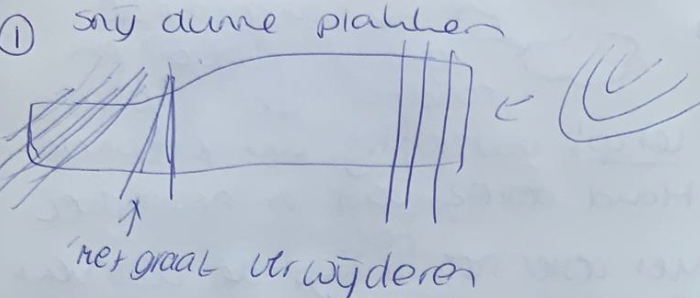 ① snij dunne plakken
het graat verwijderen